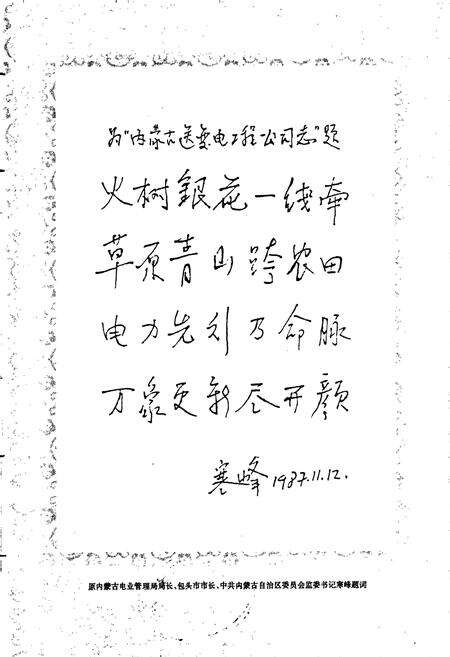 为"内蒙古送变电工程公司志"题
火树銀花一线牵
草原青山跨农田
电力先行乃命脉
万象更新尽开颜
寒峰 1987.11.12.
原内蒙古电业管理局局长、包头市市长、中共内蒙古自治区委员会监委书记寒峰题词